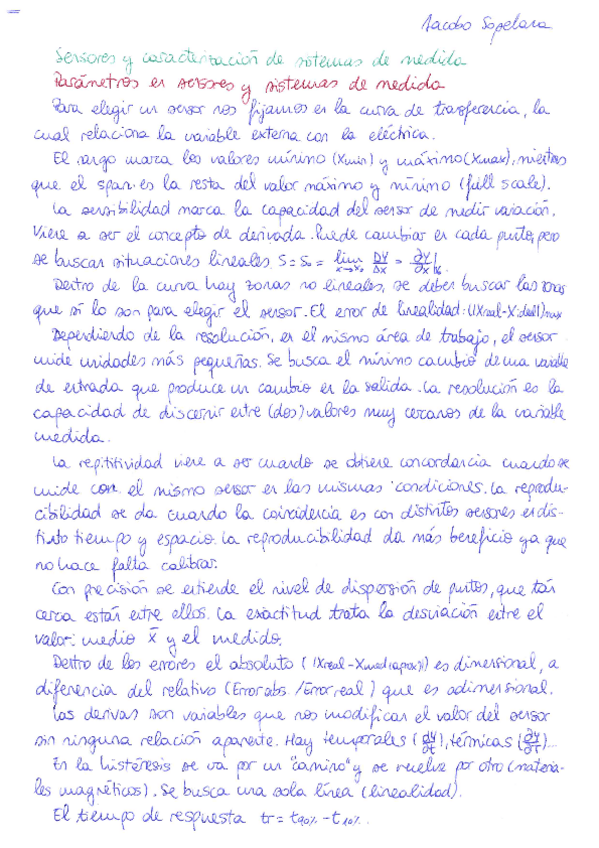 Jacobo Sopelana
Sensores y caracterización de sistemas de medida
Parámetros en sensores y sistemas de medida
Para elegir un sensor nos fijamos en la curva de trasferencia, la
cual relaciona la variable externa con la eléctrica.
El rango marca los valores mínimo (Xmin) y máximo (Xmax), mientras
que el span es la resta del valor máximo y mínimo (full scale).
La sensibilidad marca la capacidad del sensor de medir variación.
Viene a ser el concepto de derivada. Puede cambiar en cada punto, pero
se buscan situaciones lineales. S = S₀ = lim x→x₀ ΔY/Δx = ∂Y/∂x|x₀
Dentro de la curva hay zonas no lineales, se deben buscar las zonas
que sí lo son para elegir el sensor. El error de linealidad: (|Xreal-Xideal|)max
Dependiendo de la resolución, en el mismo área de trabajo, el sensor
mide unidades más pequeñas. Se busca el mínimo cambio de una variable
de entrada que produce un cambio en la salida. La resolución es la
capacidad de discernir entre (dos) valores muy cercanos de la variable
medida.
La repititividad viene a ser cuando se obtiene concordancia cuando se
mide con el mismo sensor en las mismas condiciones. La reprodu-
cibilidad se da cuando la coincidencia es con distintos sensores en dis-
tinto tiempo y espacio. La reproducibilidad da más beneficio ya que
no hace falta calibrar.
Con precisión se entiende el nivel de dispersión de puntos, que tan
cerca están entre ellos. La exactitud trata la desviación entre el
valor medio x̄ y el medido.
Dentro de los errores el absoluto (|Xreal-Xmed(aprox)|) es dimensional, a
diferencia del relativo (Error abs. / Error real) que es adimensional.
Las derivas son variables que nos modifican el valor del sensor
sin ninguna relación aparente. Hay temporales (∂Y/∂t), térmicas (∂Y/∂T)...
En la histéresis se va por un "camino" y se vuelve por otro (materia-
les magnéticos). Se busca una sola línea (linealidad).
El tiempo de respuesta tr = t90% - t10%.